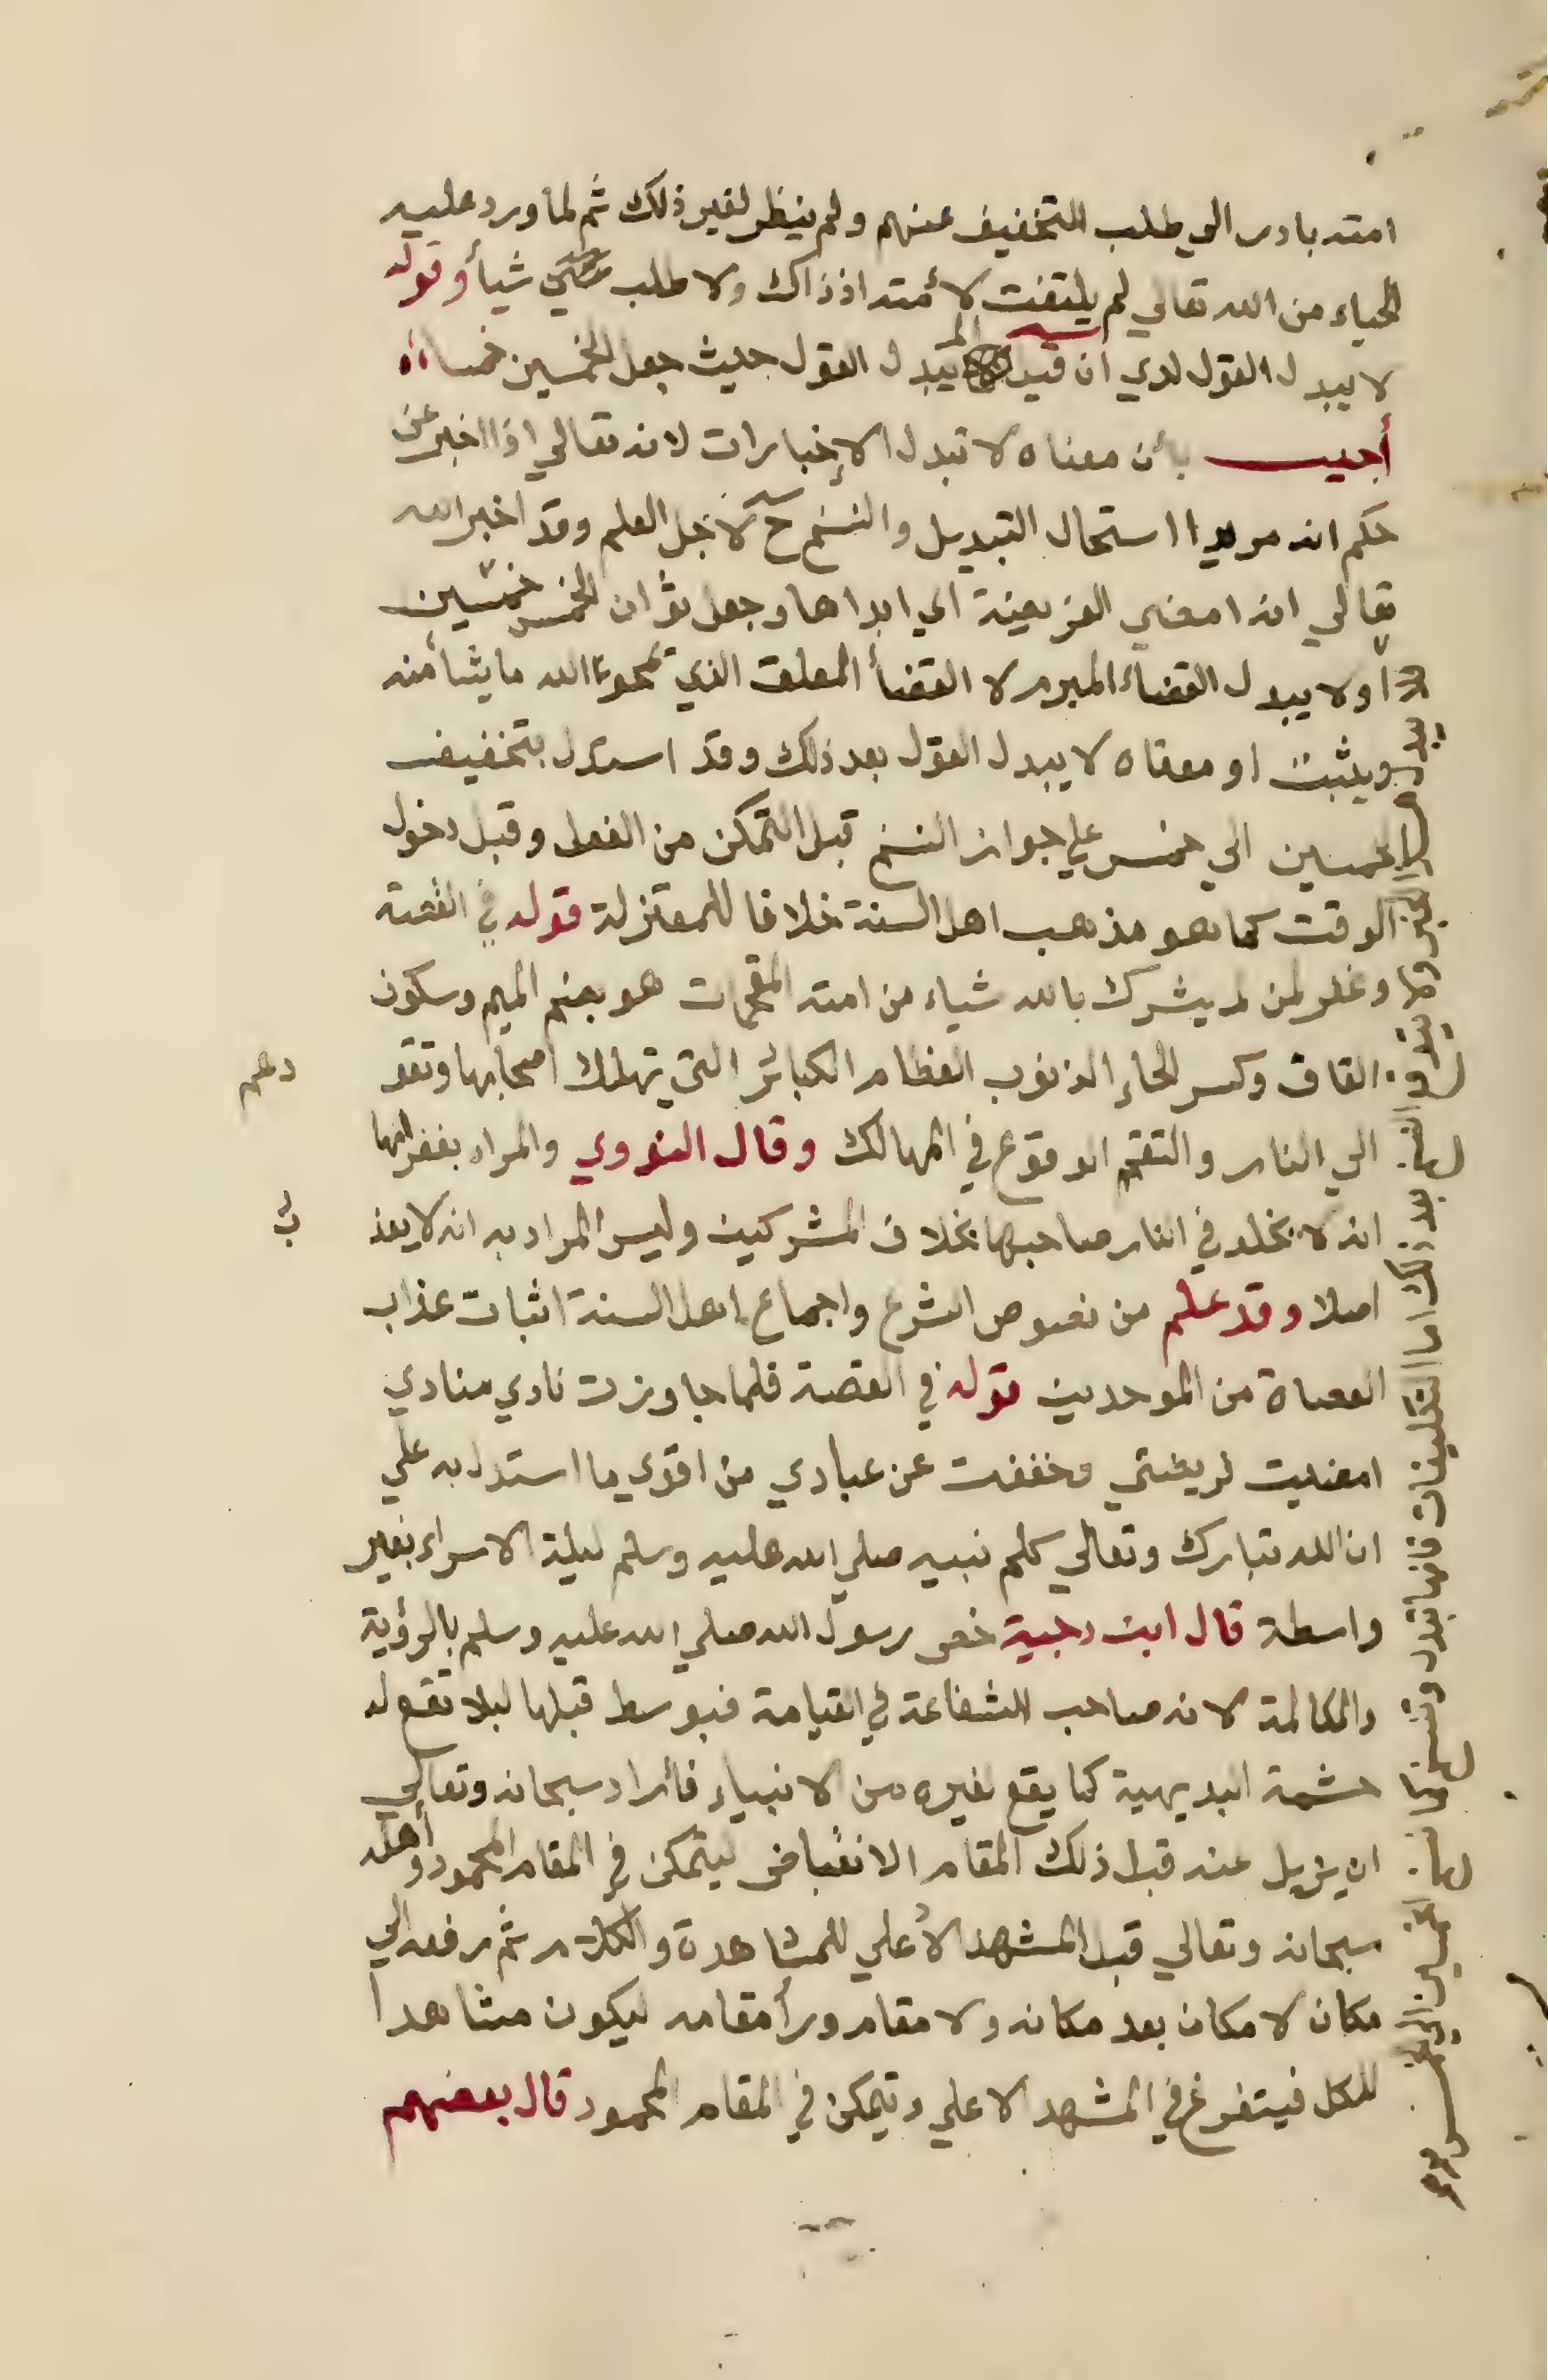 امته بادر الي طلب التخفيف عنهم ولم ينظر لغير ذلك ثم لما ورد عليه
الحياء من الله تعالي لم يلتفت لأمته اذ ذاك ولا طلب شيأ وقوله
لا يبدل القول لدي ان قيل الم يبدل القول حيث جعل الخمسين خمسا
أجيب بأن معناه لا تبدل الإخبارات لانه تعالي اذا اخبر عن
حكم انه مريدا استحال التبديل والنسخ ح لاجل العلم وقد اخبر الله
تعالي انه امضي الفريضة اي ابداها وجعل ثوان الخمس خمسين
أولا يبدل القضاء المبرم لا القضأ المعلق الذي يمحو الله ما يشأ منه
ويثبت او معناه لا يبدل القول بعد ذلك وقد استدل بتخفيف
الخمسين الي خمس علي جواز النسخ قبل التمكن من الفعل وقبل دخول
الوقت كما هو مذهب اهل السنة خلافا للمعتزلة قوله في القصة
وغفر لمن لم يشرك بالله شياء من امته المقحمات هو بضم الميم وسكون
القاف وكسر الحاء الذنوب العظام الكبائر التي تهلك اصحابها وتقو
دهم
الي النار والتقحم الوقوع في المهالك وقال النووي والمراد بغفرانها
انه لا يخلد في النار صاحبها بخلاف المشركين وليس المراد به انه لا يعذ
ب
اصلا وقد علم من نصوص الشرع واجماع اهل السنة اثبات عذاب
العصاة من الموحدين قوله في القصة فلما جاوزت نادي منادي
امضيت فريضتي وخففت عن عبادي من اقوي ما استدل به علي
ان الله تبارك وتعالي كلم نبيه صلي الله عليه وسلم ليلة الاسراء بغير
واسطة قال ابن دحية خص رسول الله صلي الله عليه وسلم بالرؤية
والمكالمة لانه صاحب الشفاعة في القيامة فبوسط قبلها ليلا تقع له
حشمة البديهية كما يقع لغيره من الانبياء فأراد سبحانه وتعالي
ان يزيل عنه قبل ذلك المقام الانقباض ليتمكن في المقام المحمود وأهله
سبحانه وتعالي قبل المشهد الأعلي للمشاهدة والكلام ثم رفعه الي
مكان لا مكان بعد مكانه ولا مقام ورأ مقامه ليكون مشاهدا
للكل فيتفرغ في المشهد الاعلي وتيمكن في المقام المحمود قال بعضهم
بعد ذلك اما التكليفات فانها تبدل وتنسخ كما نسخ الخمسين الي الخمس